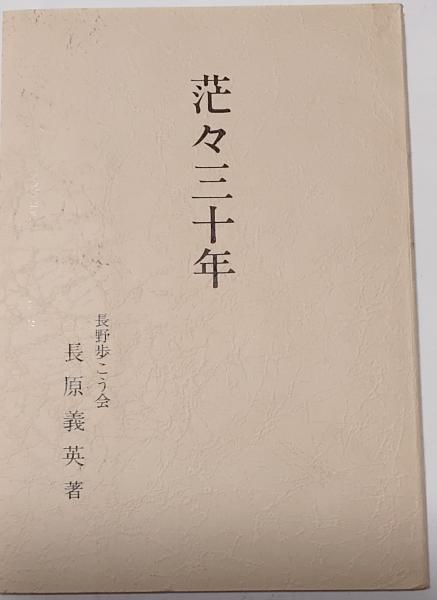 茫々三十年
長野歩こう会
長原義英著